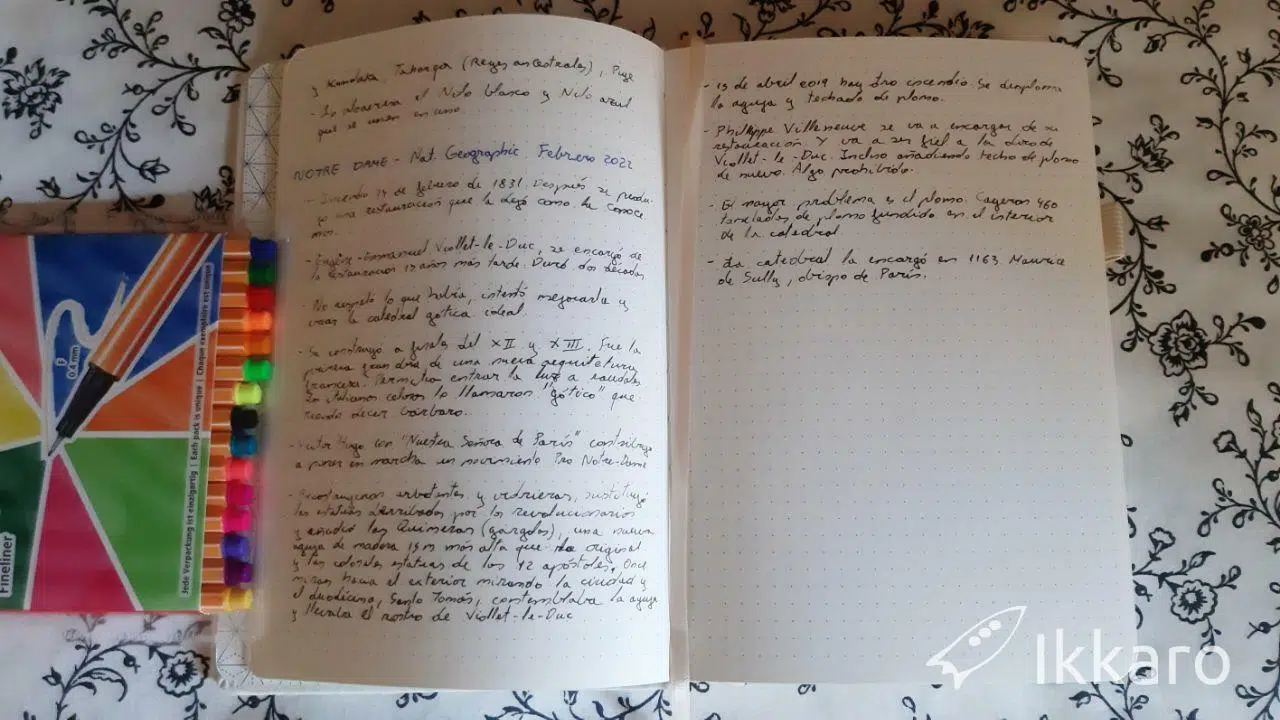 y Kandaka, Taharqa (Reyes ancestrales),
el Nilo blanco y Nilo azul
que se unen en uno.
NOTRE DAME - Nat. Geographic. Febrero 2022
- Incendio 14 de febrero de 1831. Después se produ-
jo una restauración que la dejó como la conoce
mos.
- Eugène-Emmanuel Viollet-le-Duc, se encargó de
la restauración 13 años más tarde. Duró dos décadas
- No respetó lo que había, intentó mejorarla y
crear la catedral gótica ideal.
- Se construyó a finales del XII y XIII. Fue la
primera gran obra de una nueva arquitetura
francesa. Permitía entrar la luz a raudales
Los italianos celosos lo llamaron "gótico" que
riendo decir bárbaro.
- Victor Hugo con "Nuestra Señora de París" contribuyo
a poner en marcha un movimiento Pro Notre-Dame
- arbotantes y vidrieras, sustituyó
las estatuas derribadas por los revolucionarios
y añadió las Quimeras (gárgolas), una nueva
aguja de madera 15 m más alta que la original
y las colosales estatuas de los 12 apóstoles. Once
miran hacia el exterior mirando la ciudad y
el duodécimo, Santo Tomás, contemplaba la aguja
y llevaba el rostro de Viollet-le-Duc
- 15 de abril 2019 hay otro incendio. Se desploma
la aguja y techado de plomo.
- Philippe Villeneuve se va a encargar de su
restauración y va a ser fiel a la obra de
Viollet-le-Duc. Incluso añadiendo techo de plomo
de nuevo. Algo prohibido.
- El mayor problema es el plomo. Cayeron 460
toneladas de plomo fundido en el interior
de la catedral
- La catedral la encargó en 1163 Maurice
de Sully, obispo de París.
F
0.4 mm
Fineliner
Jede Verpackung ist einzigartig | Each pack is unique | Chaque exemplaire est unique
Ikkaro